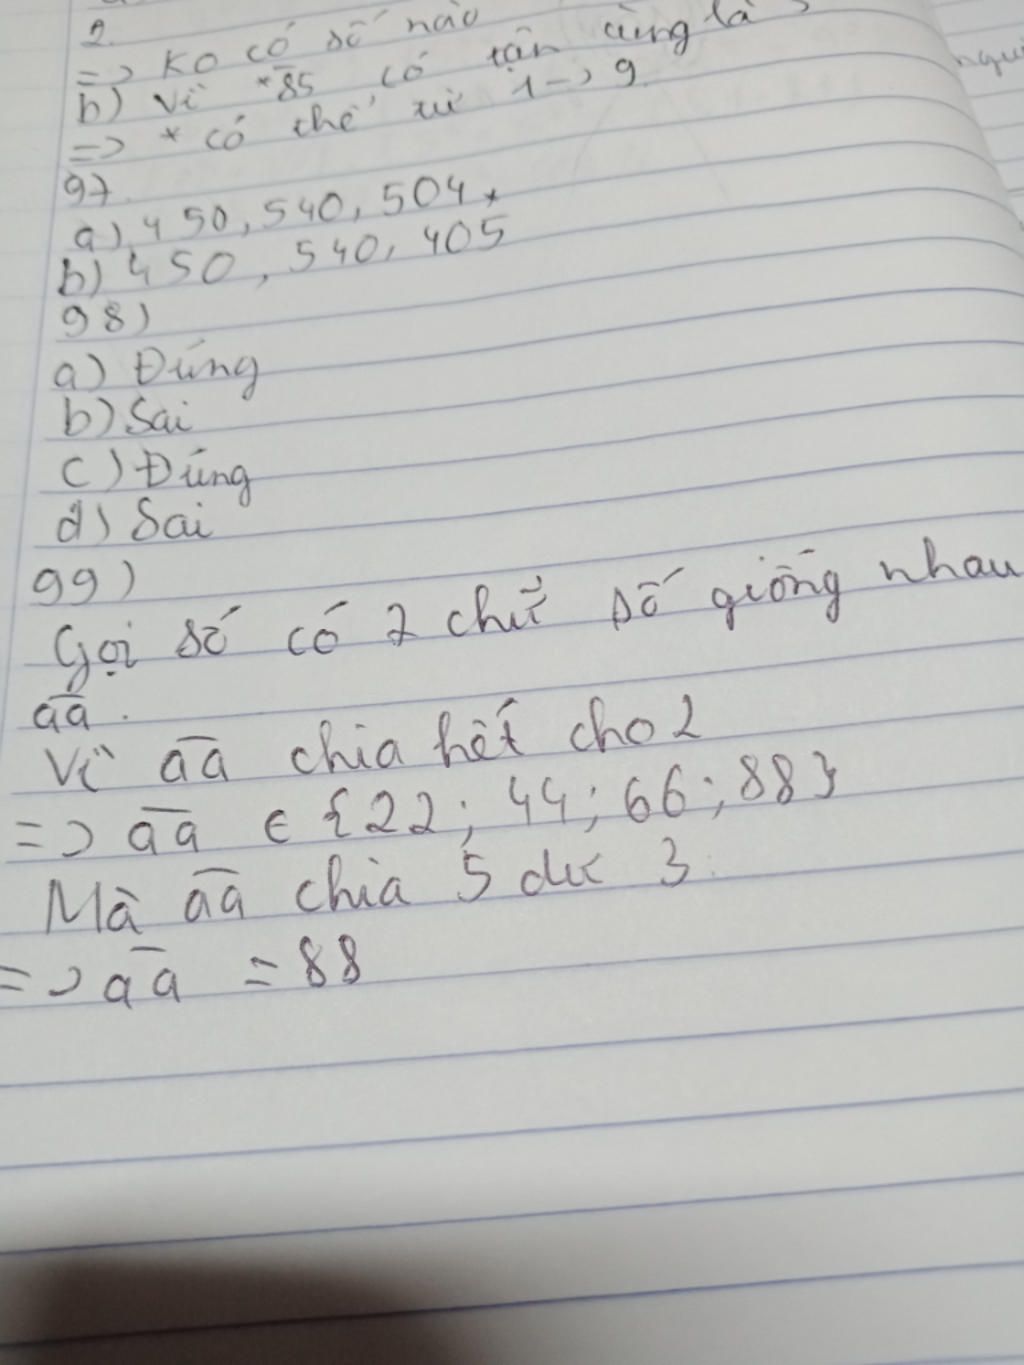 2.
=> Ko có số nào
b) Vì *85 có tận cùng là 5
=> * có thể từ 1 -> 9.
97.
a) 450, 540, 504.
b) 450, 540, 405
98)
a) Đúng
b) Sai
c) Đúng
d) Sai
99)
Gọi số có 2 chữ số giống nhau
aa.
Vì aa chia hết cho 2
=> aa ∈ {22; 44; 66; 88}
Mà aa chia 5 dư 3.
=> aa = 88